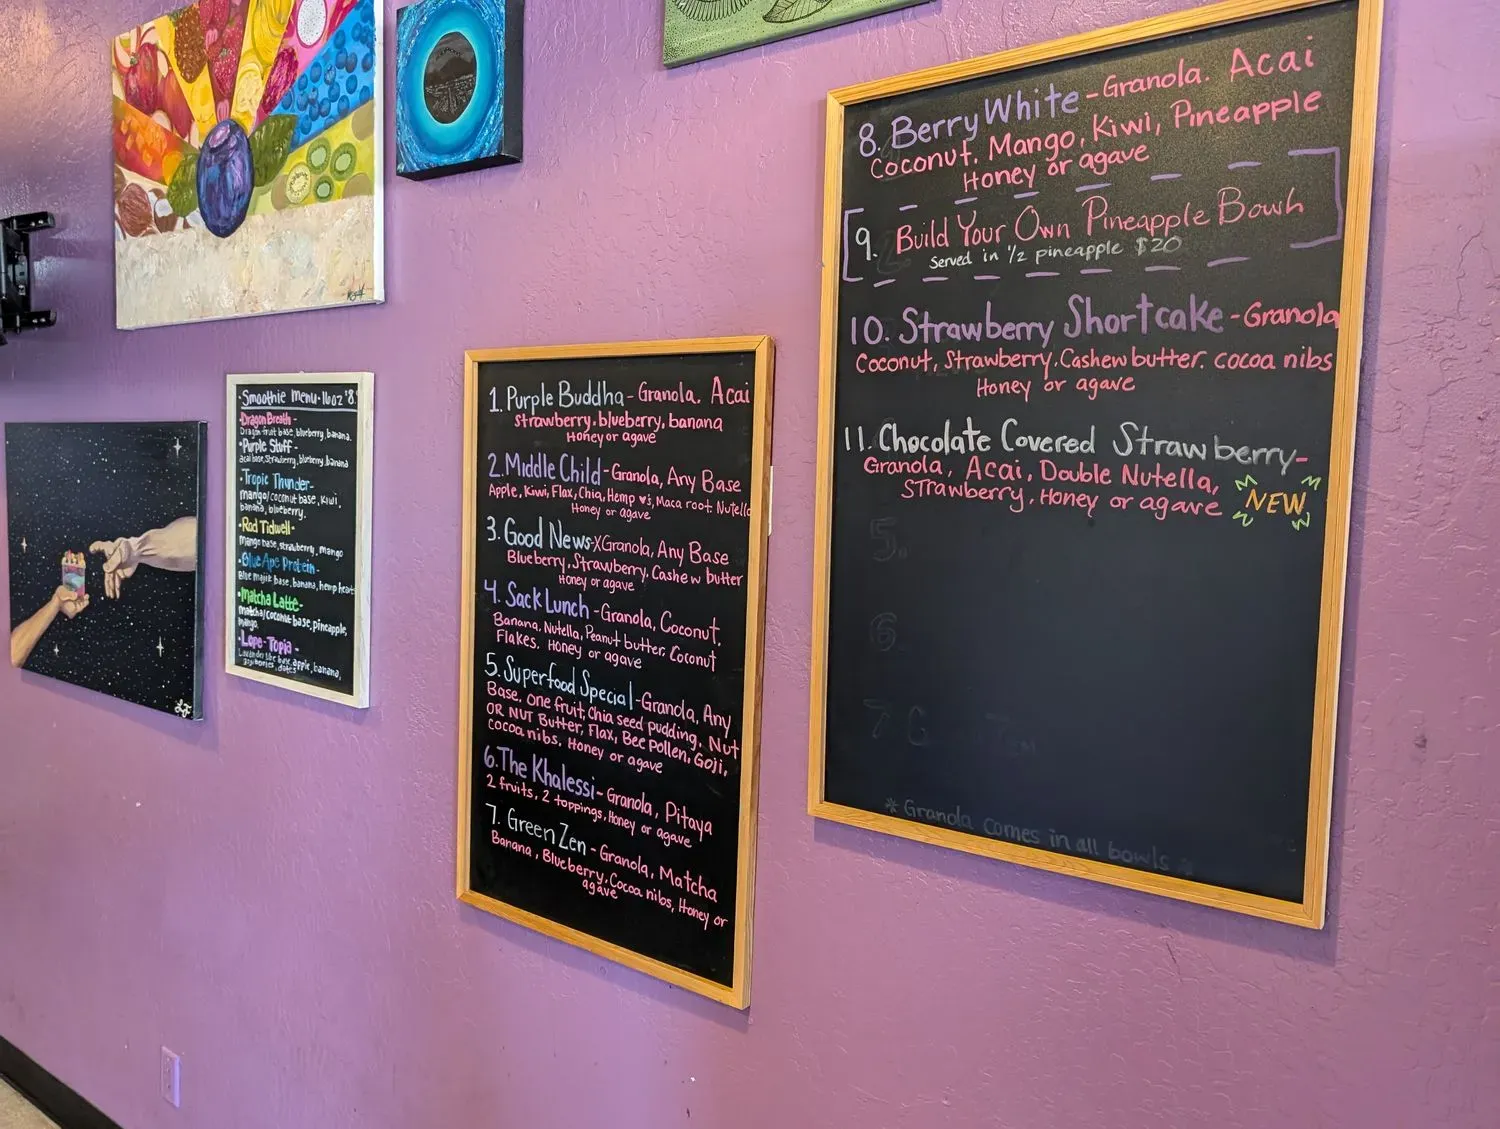 Smoothie Menu - 16oz $8.
• Dragon Breath -
Dragon fruit base, blueberry, banana.
• Purple Stuff -
acai base, strawberry, blueberry, banana
• Tropic Thunder -
mango/coconut base, kiwi,
banana, blueberry.
• Rod Tidwell -
mango base, strawberry, mango
• Blue Ape Protein -
Blue majik base, banana, hemp heart
• Matcha Latte -
matcha/coconut base, pineapple,
mango.
• Lope-Topia -
base, apple, banana,
dates
1. Purple Buddha - Granola. Acai
Strawberry, blueberry, banana
Honey or agave
2. Middle Child - Granola, Any Base
Apple, Kiwi, Flax, Chia, Hemp ♥s, Maca root. Nutella
Honey or agave
3. Good News - XGranola, Any Base
Blueberry, Strawberry, Cashew butter
Honey or agave
4. Sack Lunch - Granola, Coconut,
Banana, Nutella, Peanut butter, Coconut
Flakes. Honey or agave
5. Superfood Special - Granola, Any
Base, one fruit, Chia seed pudding, Nut
OR NUT Butter, Flax, Bee Pollen, Goji,
cocoa nibs, Honey or agave
6. The Khalessi - Granola, Pitaya
2 fruits, 2 toppings, Honey or agave
7. Green Zen - Granola, Matcha
Banana, Blueberry, Cocoa nibs, Honey or
agave
8. Berry White - Granola. Acai
Coconut. Mango, Kiwi, Pineapple
Honey or agave
9. Build Your Own Pineapple Bowh
Served in 1/2 pineapple $20
10. Strawberry Shortcake - Granola
Coconut, Strawberry. Cashew butter. cocoa nibs
Honey or agave
11. Chocolate Covered Strawberry -
Granola, Acai, Double Nutella,
Strawberry, Honey or agave NEW
5.
6
7
* Granola comes in all bowls *